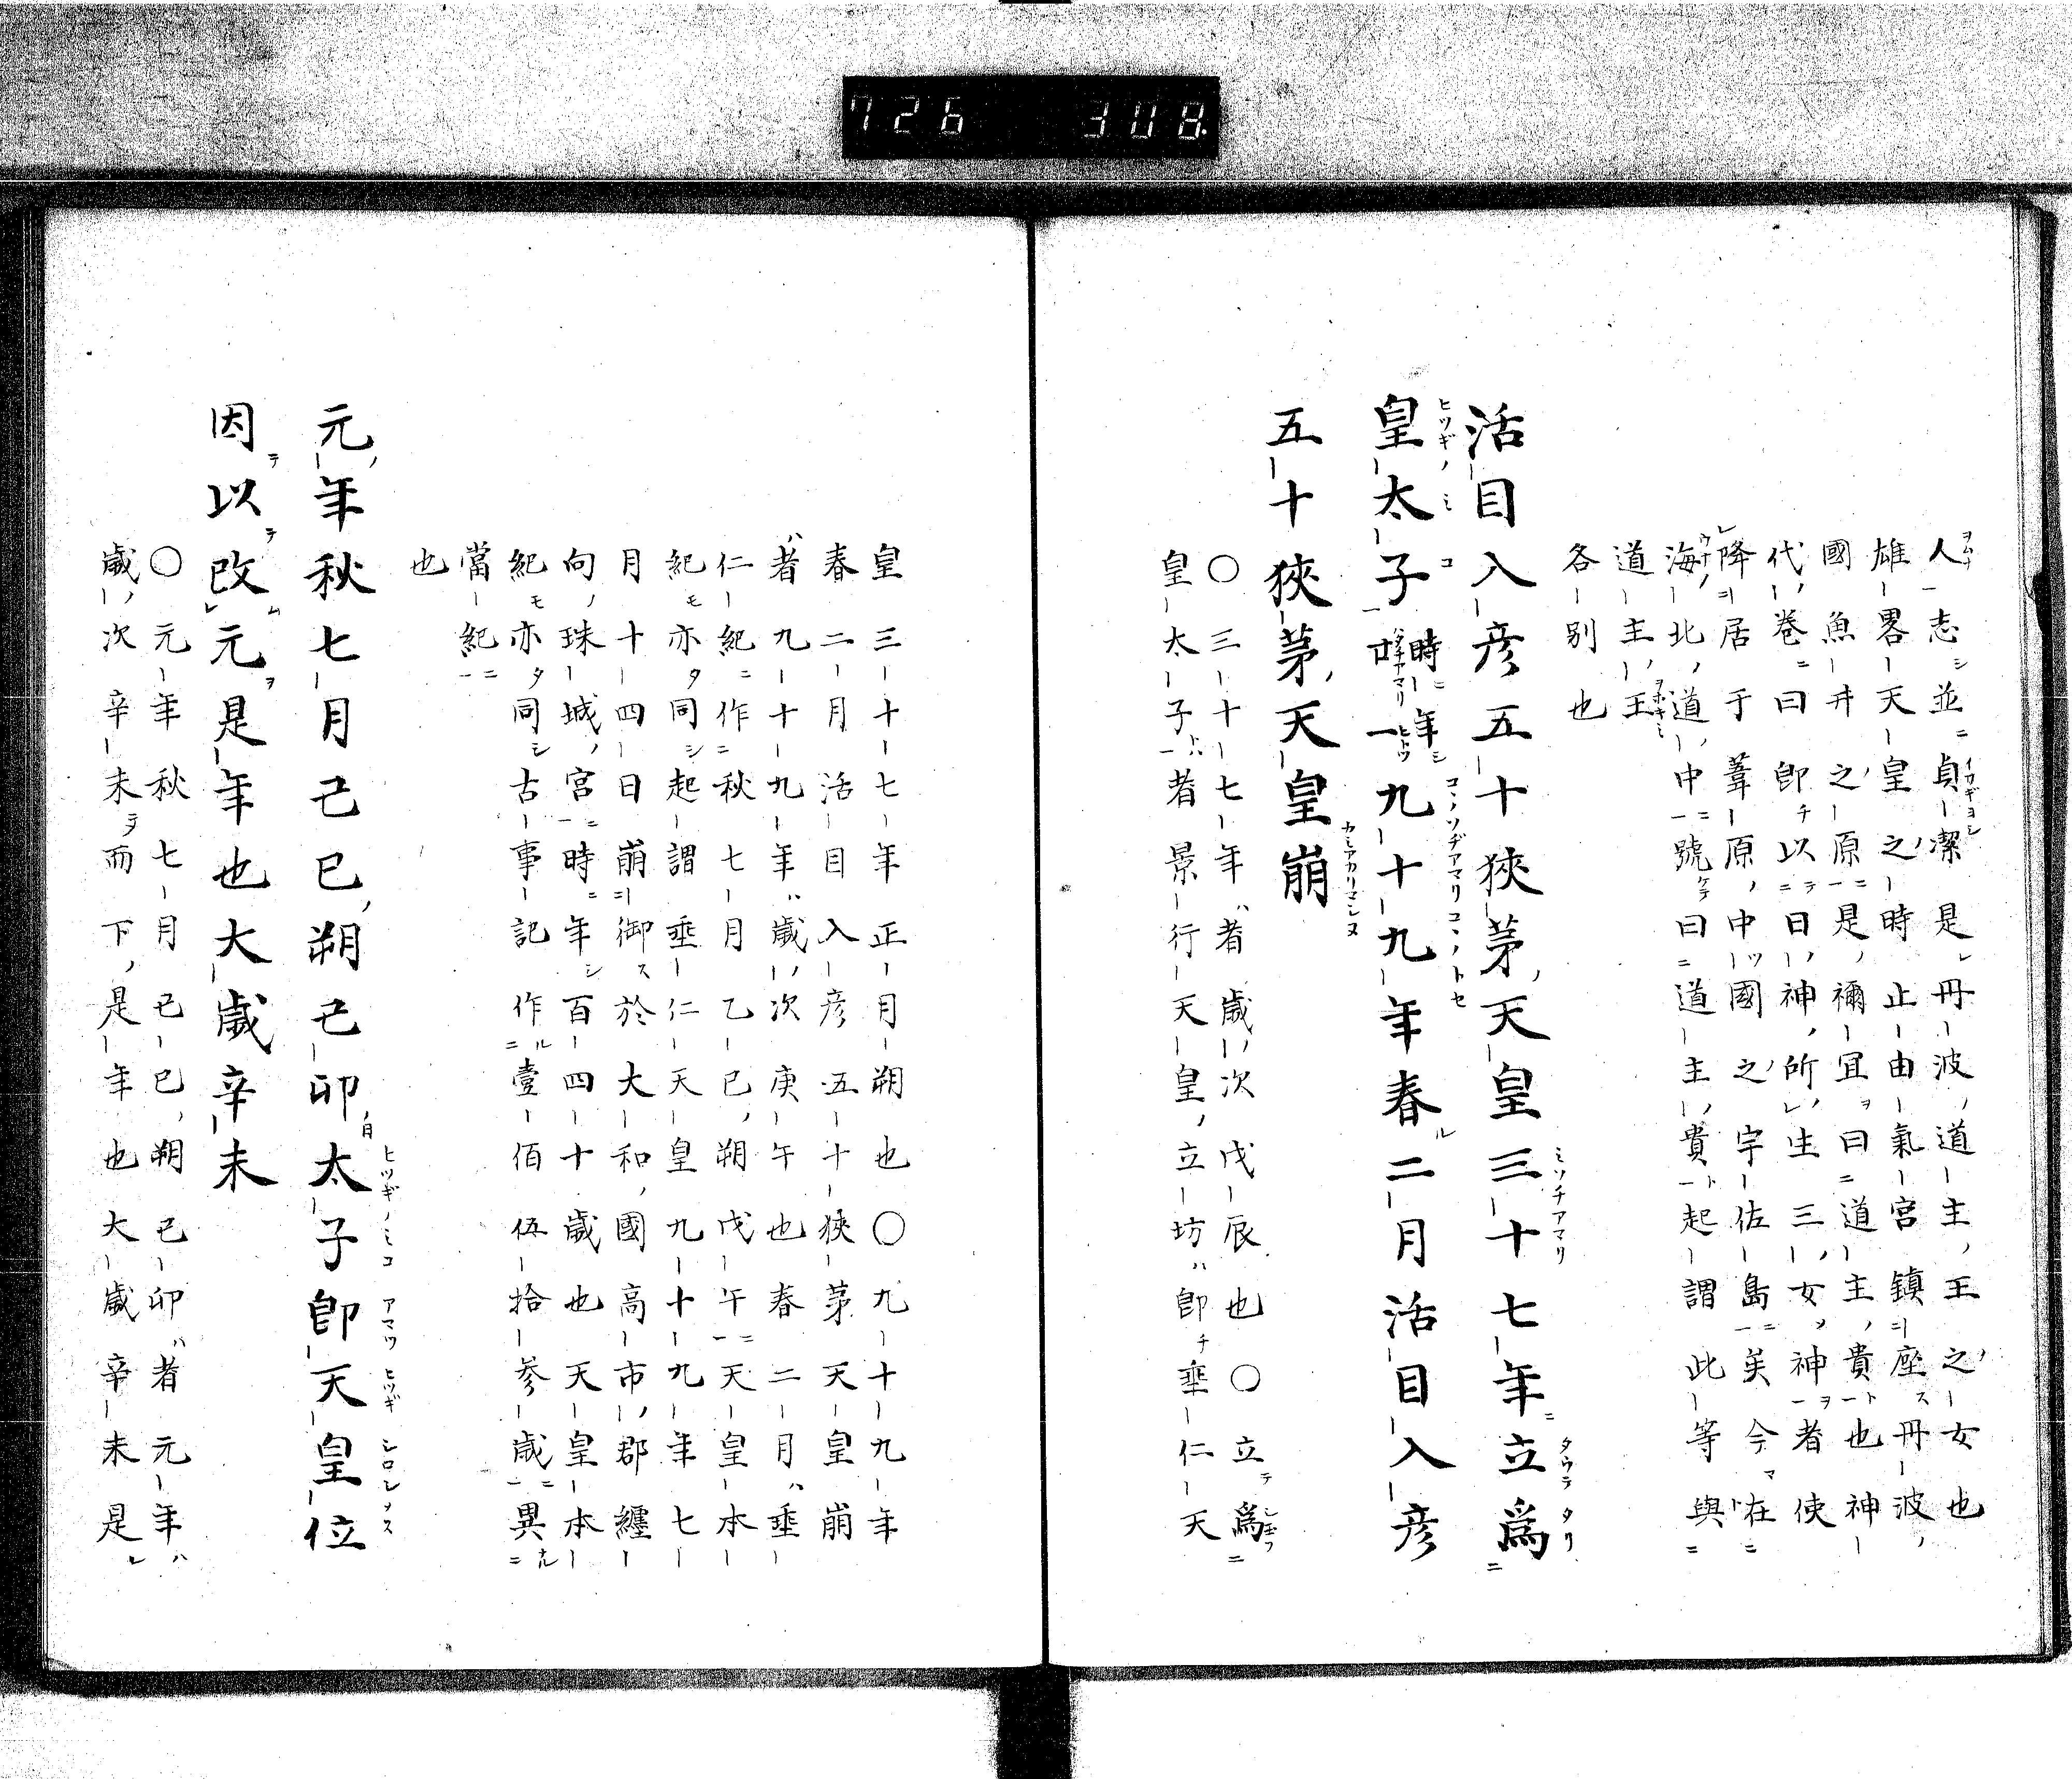 726 308
人志並貞潔是丹波道主王之女也
雄畧天皇之時止由氣宮鎮座丹波
國魚井之原是禰冝曰道主貴也神
代卷曰卽以日神所生三女神者使
降居于葦原中國之宇佐島矣今在
海北道中號曰道主貴起謂此等與
道主王
各別也
活目入彦五十狹茅天皇三十七年立爲
皇太子時年廿一九十九年春二月活目入彦
五十狹茅天皇崩
〇三十七年者歲次戊辰也〇立爲
皇太子者景行天皇立坊卽埀仁天
皇三十七年正月朔也〇九十九年
春二月活目入彦五十狹茅天皇崩
者九十九年歲次庚午也春二月埀
仁紀作秋七月乙巳朔戊午天皇本
紀亦同起謂埀仁天皇九十九年七
月十四日崩御於大和國高市郡纒
向珠城宮時年百四十歲也天皇本
紀亦同古事記作壹佰伍拾參歲異
當紀
也
元年秋七月己巳朔己卯太子卽天皇位
因以改元是年也大歲辛未
〇元年秋七月己巳朔己卯者元年
歲次辛未而下是年也大歲辛未是